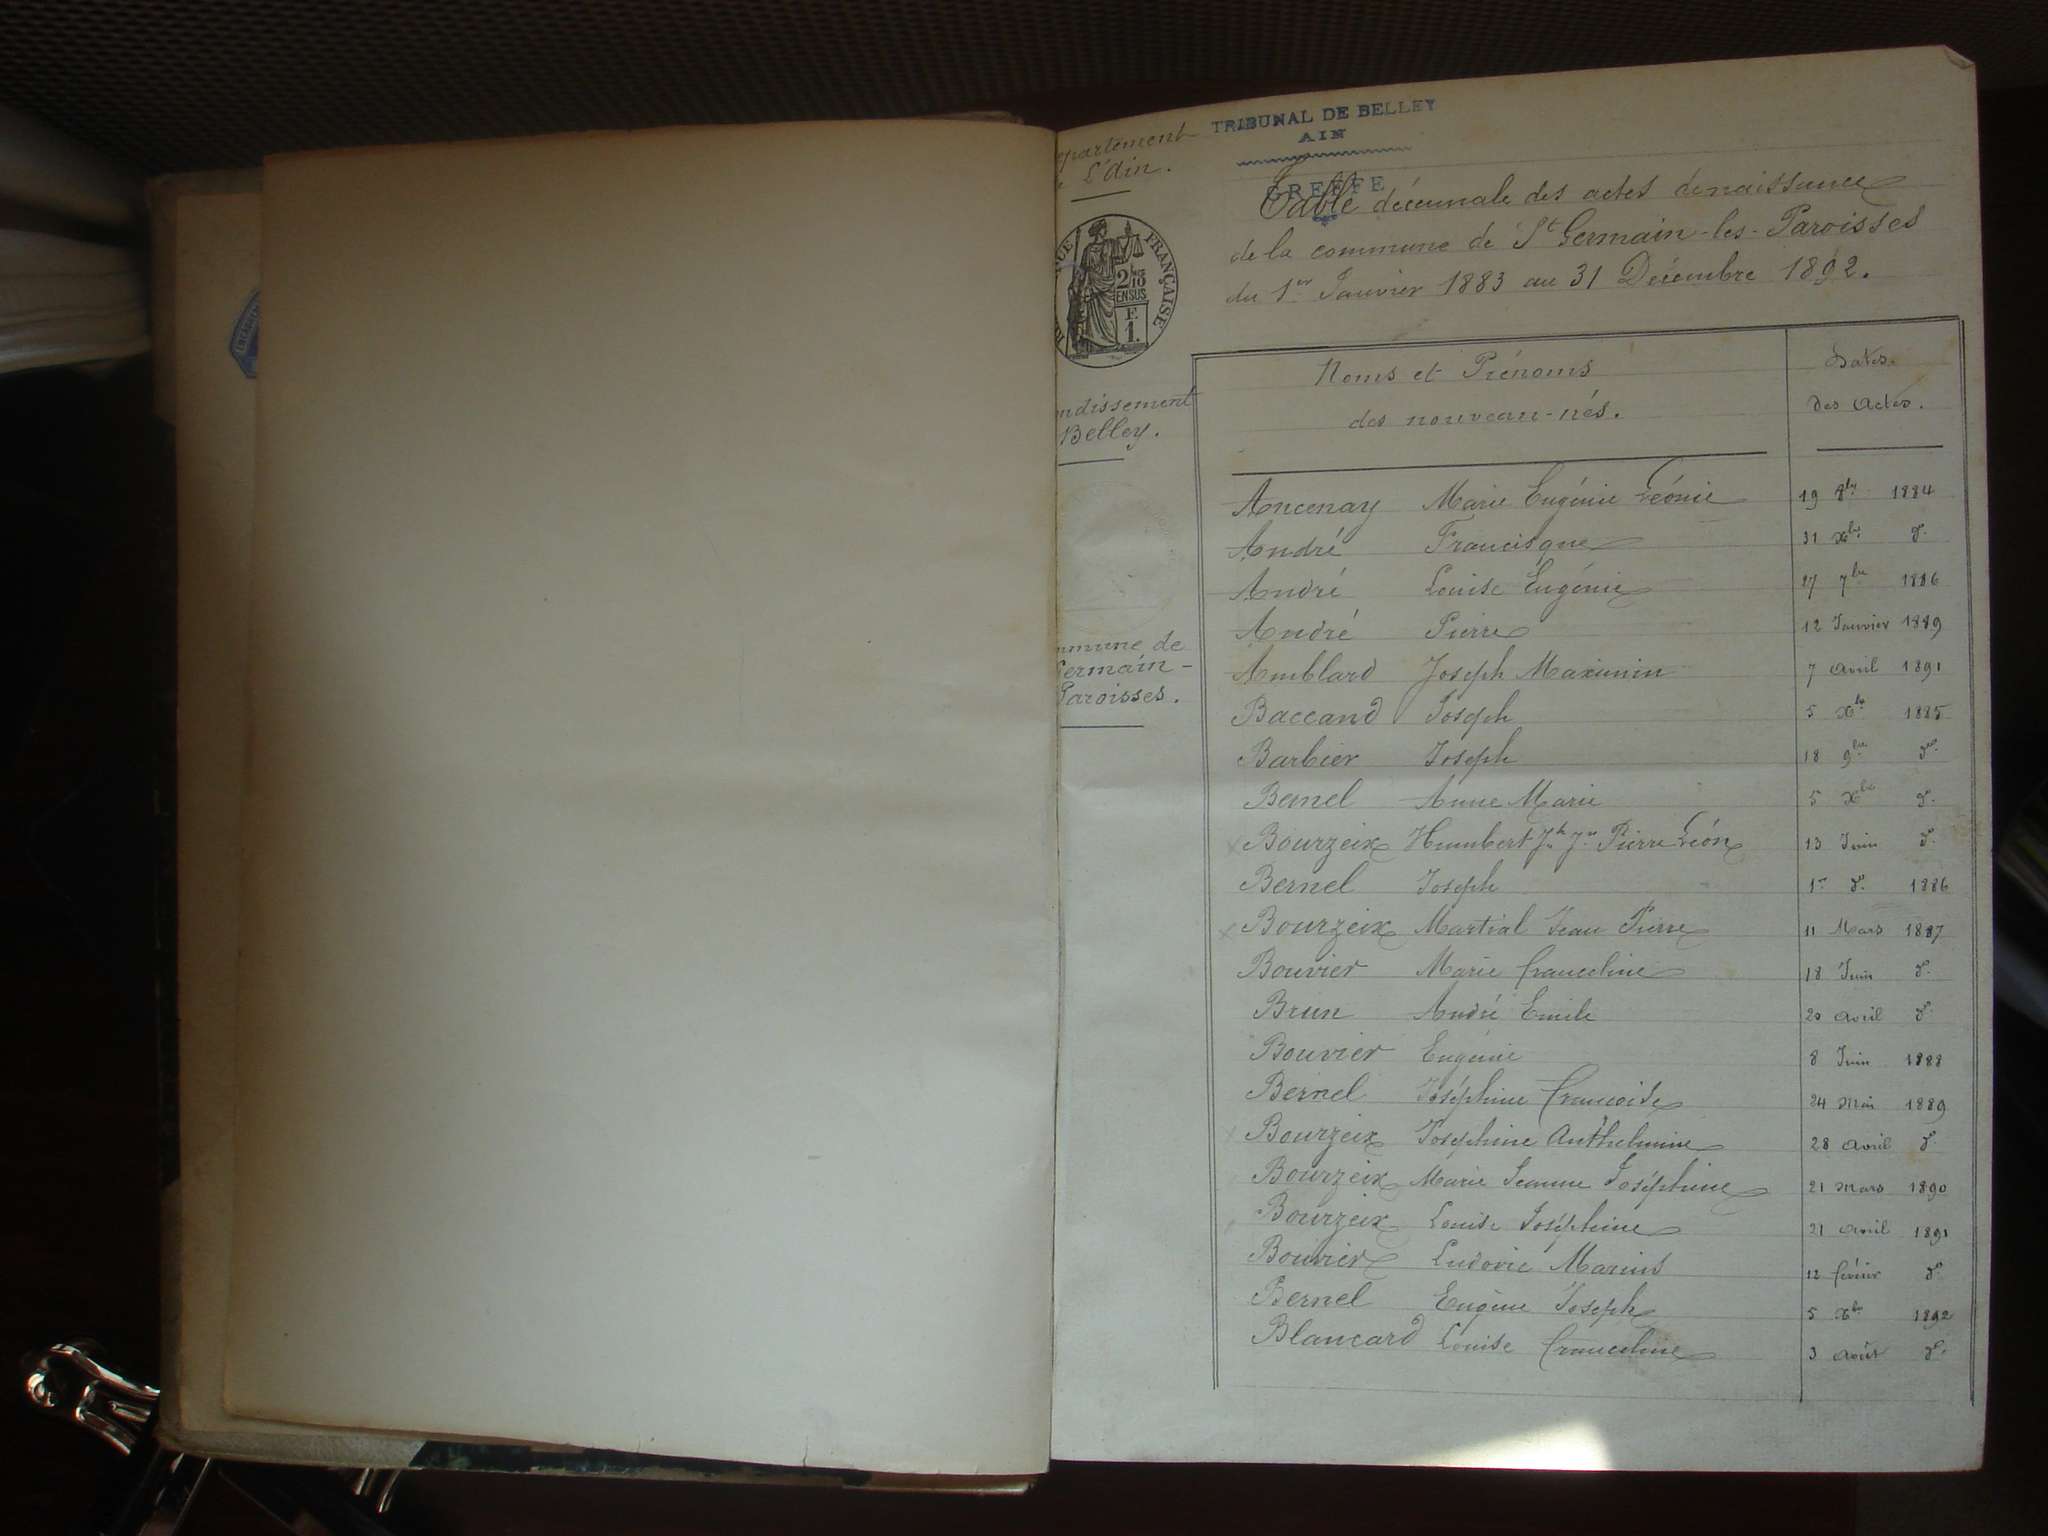 partement
L'Ain.
TRIBUNAL DE BELLEY
AIN
GREFFE
Table décennale des actes de naissance
de la commune de St Germain-les-Paroisses
du 1er Janvier 1883 au 31 Décembre 1892.
FRANÇAISE
2/10
EN SUS
F.
1.
ndissement
Belley.
mmune de
Germain-
Paroisses.
Noms et Prénoms Dates
des nouveau-nés. des Actes.
Ancenay Marie Eugénie Léonie 19 8bre 1884
André Francisque 31 Xbre do
André Louise Eugénie 27 7bre 1886
André Pierre 12 Janvier 1889
Amblard Joseph Maximin 7 avril 1891
Baccand Joseph 5 Xbre 1885
Barbier Joseph 18 9bre do
Bernel Anne Marie 5 Xbre do
Bourzeix Humbert Jh Jn Pierre Léon 13 Juin do
Bernel Joseph 1er do 1886
Bourzeix Martial Jean Pierre 11 Mars 1887
Bouvier Marie franceline 18 Juin do
Brun André Emile 20 avril do
Bouvier Eugénie 8 Juin 1888
Bernel Joséphine françoise 24 Mai 1889
Bourzeix Joséphine Anthelmine 28 avril do
Bourzeix Marie Jeanne Joséphine 21 Mars 1890
Bourzeix Louise Joséphine 21 avril 1891
Bouvier Ludovic Marius 12 février do
Bernel Eugène Joseph 5 Xbre 1892
Blancard Louise franceline 3 août do